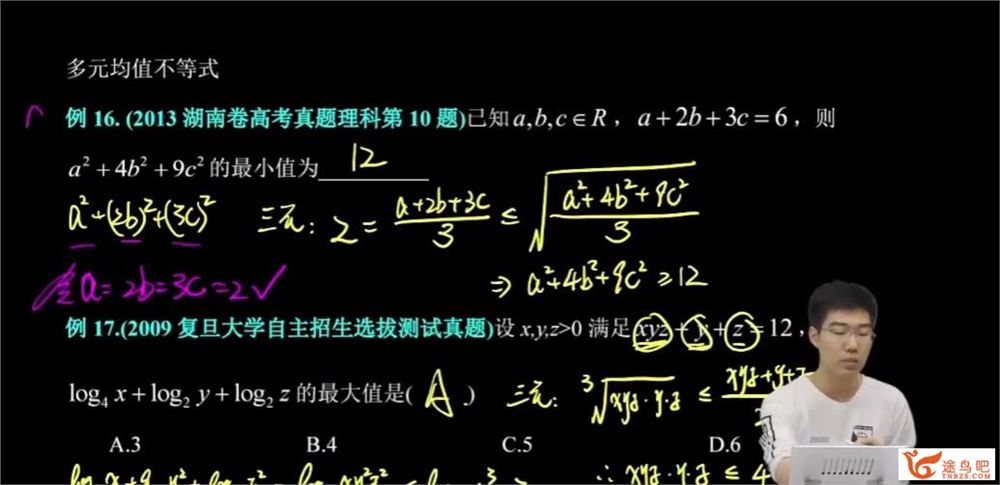 多元均值不等式
例 16. (2013 湖南卷高考真题理科第 10 题)已知 a,b,c∈R，a+2b+3c=6，则
a²+4b²+9c² 的最小值为 12
a²+(2b)²+(3c)² 三元: 2 = (a+2b+3c)/3 ≤ √((a²+4b²+9c²)/3)
a=2b=3c=2 ✓ ⇒ a²+4b²+9c² ≥ 12
例 17.(2009 复旦大学自主招生选拔测试真题)设 x,y,z>0 满足 xyz+y+z=12，
log₄ x+log₂ y+log₂ z 的最大值是( A )
三元: ³√(xyz·y·z) ≤ xyz+y+z
A.3 B.4 C.5 D.6
∴ xyz·y·z ≤ 4
途鸟吧
TNBZS.COM